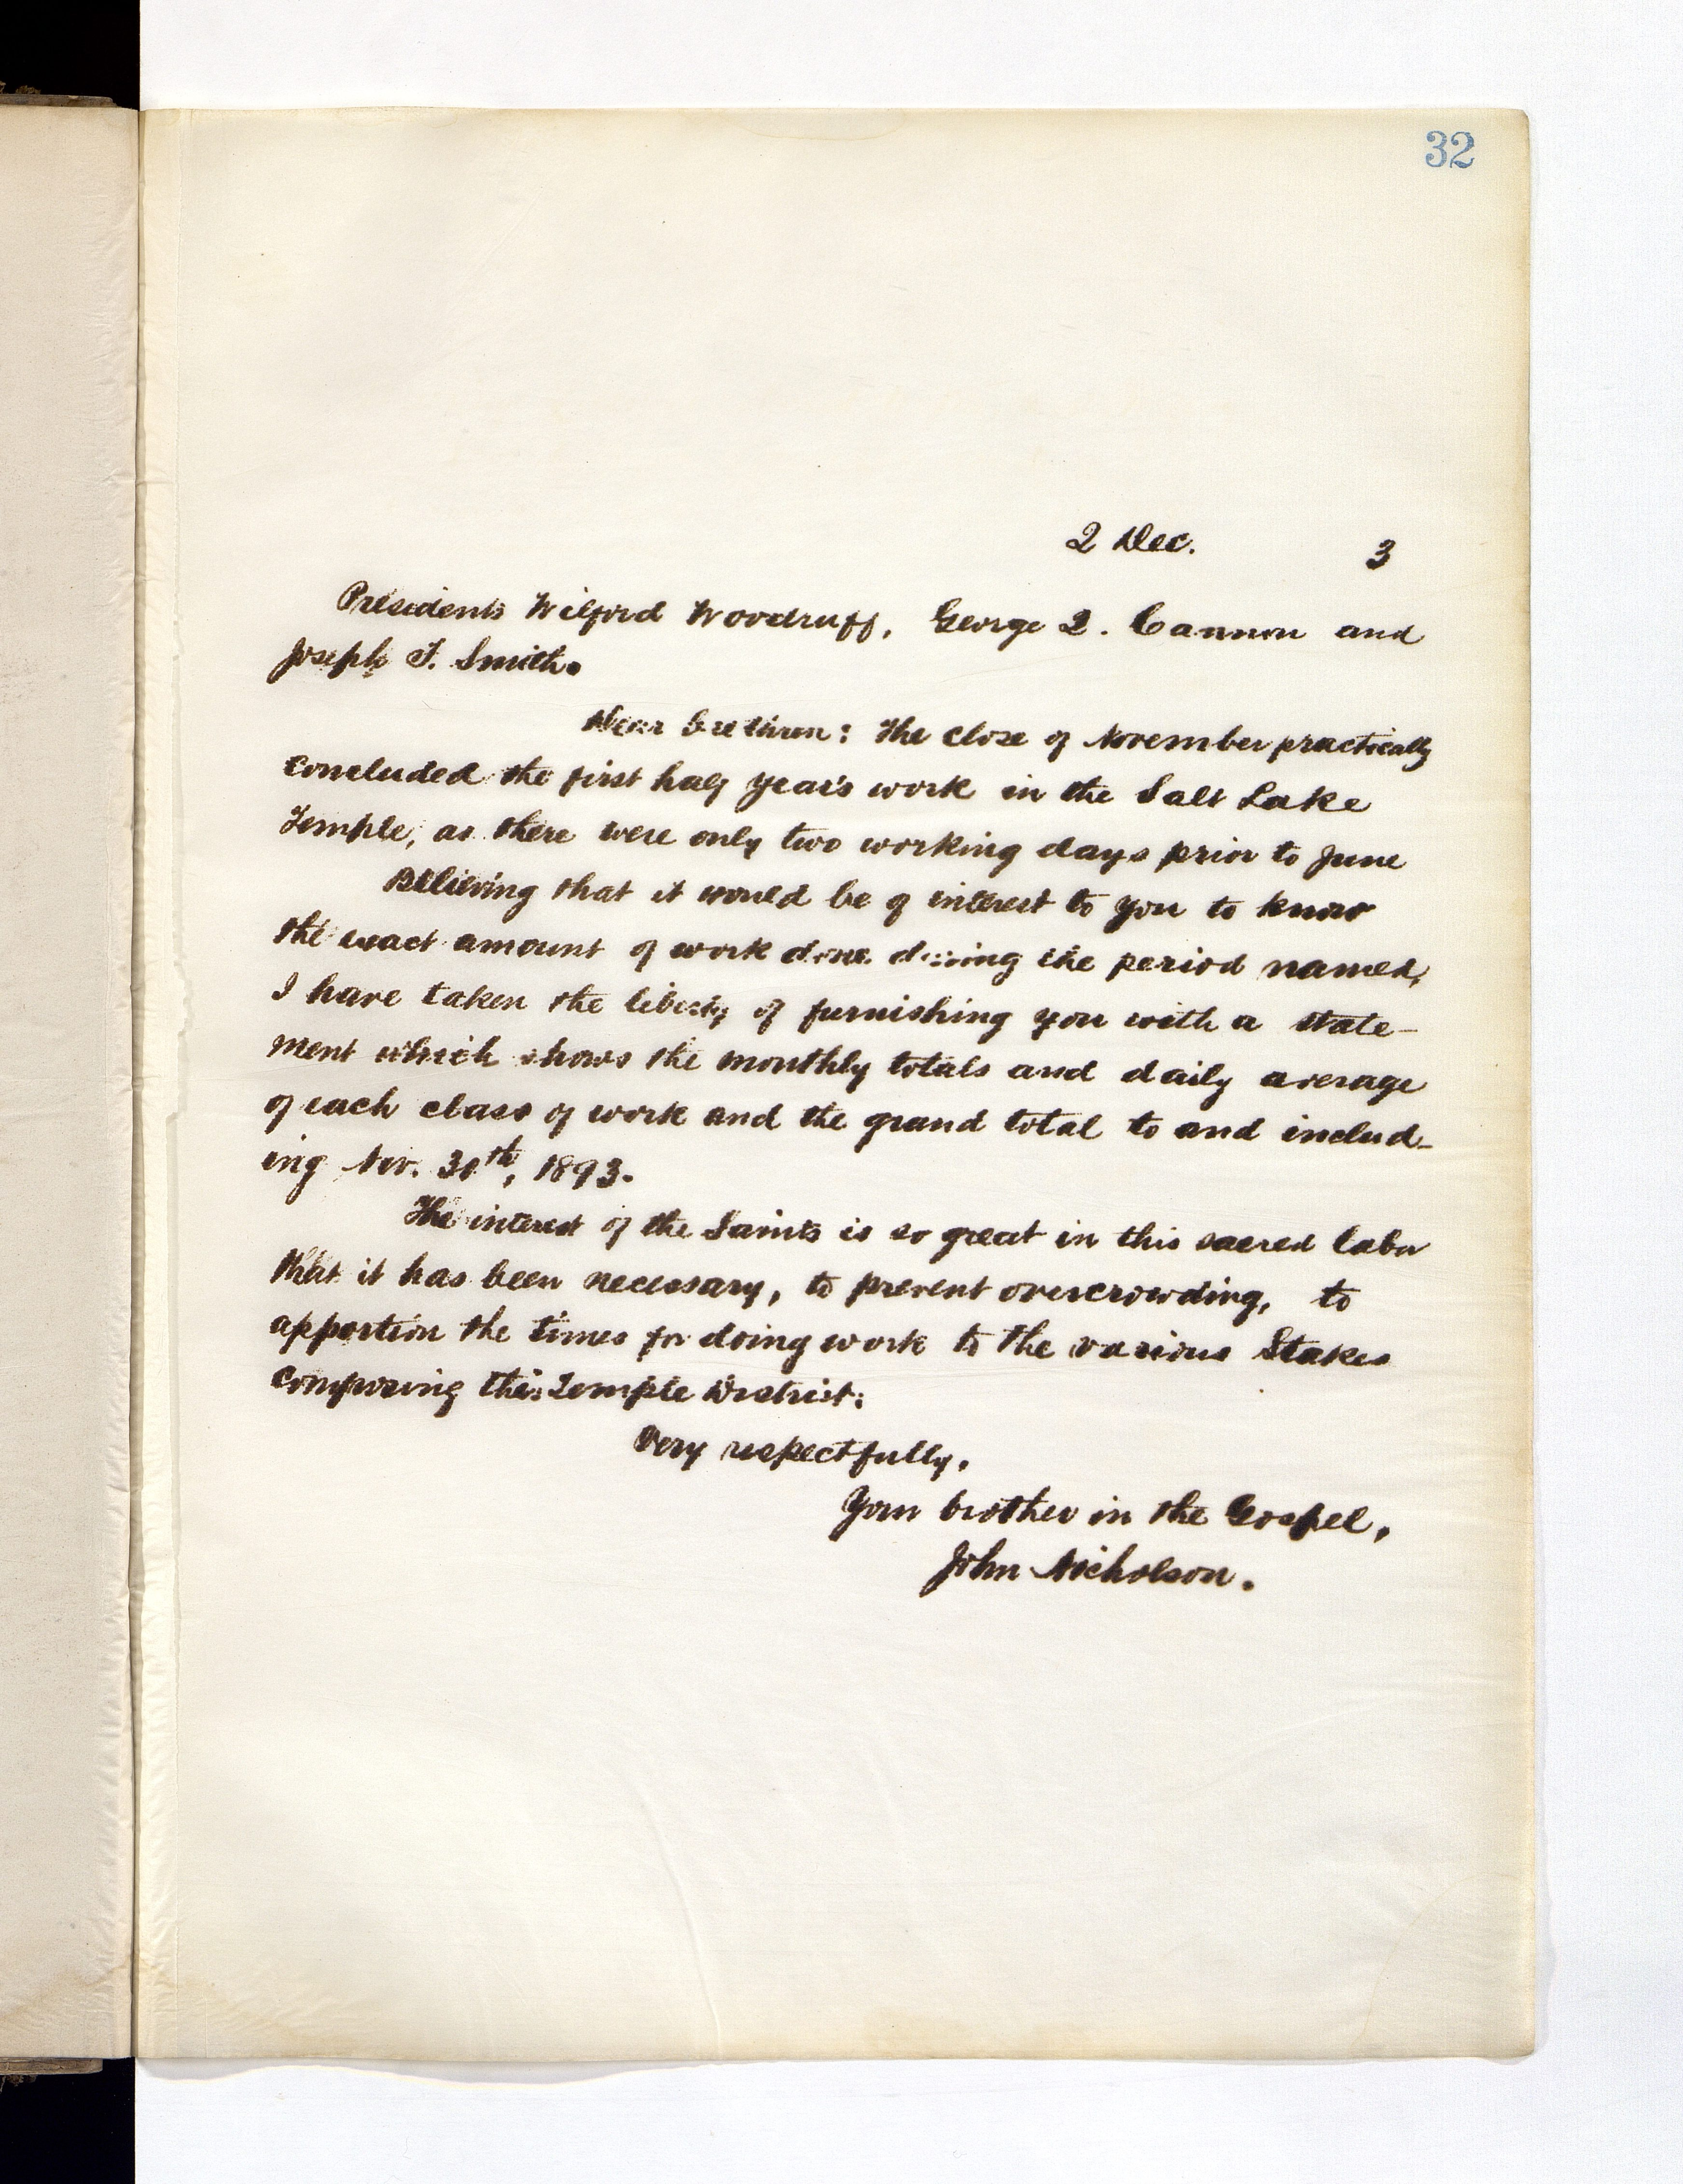 32
2 Dec. 3
Presidents Wilford Woodruff, George Q. Cannon and
Joseph F. Smith.
Dear brethren: The close of November practically
concluded the first half year's work in the Salt Lake
Temple, as there were only two working days prior to June
Believing that it would be of interest to you to know
the exact amount of work done during the period named,
I have taken the liberty of furnishing you with a state-
ment which shows the monthly totals and daily average
of each class of work and the grand total to and includ-
ing Nov. 30th, 1893.
The interest of the Saints is so great in this sacred labor
that it has been necessary, to prevent overcrowding, to
apportion the times for doing work to the various Stakes
composing this Temple District.
Very respectfully,
Your brother in the Gospel,
John Nicholson.